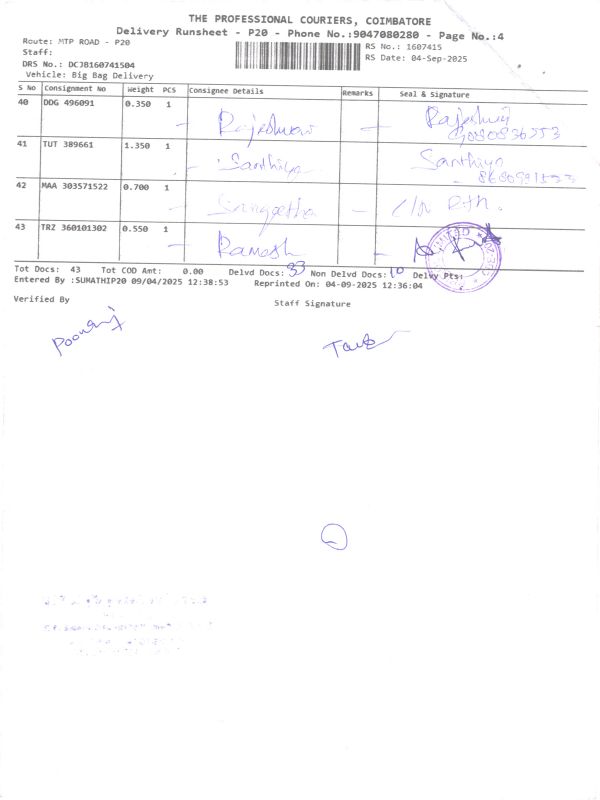 THE PROFESSIONAL COURIERS, COIMBATORE
Delivery Runsheet - P20 - Phone No.:9047080280 - Page No.:4
Route: MTP ROAD - P20
RS No.: 1607415
Staff:
RS Date: 04-Sep-2025
DRS No.: DCJB160741504
Vehicle: Big Bag Delivery
S No Consignment No Weight PCS Consignee Details Remarks Seal & Signature
40 DDG 496091 0.350 1 Rajeshwari
41 TUT 389661 1.350 1 Santhiya Santhiya
42 MAA 303571522 0.700 1 Sangeetha C/N Rtn.
43 TRZ 360101302 0.550 1 Ramesh
Tot Docs: 43 Tot COD Amt: 0.00 Delvd Docs: 33 Non Delvd Docs: 10 Delvy Pts:
Entered By :SUMATHIP20 09/04/2025 12:38:53 Reprinted On: 04-09-2025 12:36:04
Verified By
Staff Signature